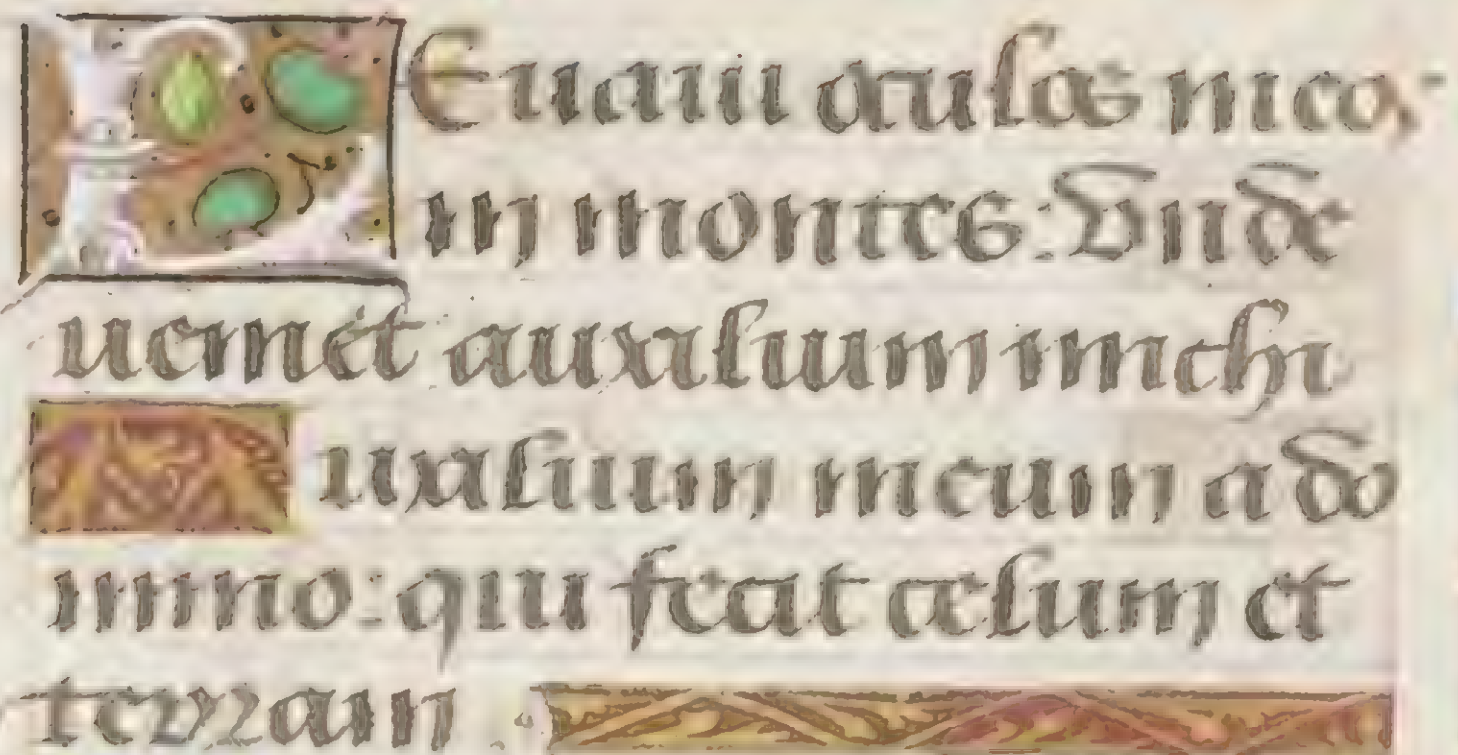 LEuaui oculos meos
in montes: Vnde
ueniet auxilium michi
Auxilium meum a do
mino: qui fecit celum et
terram.